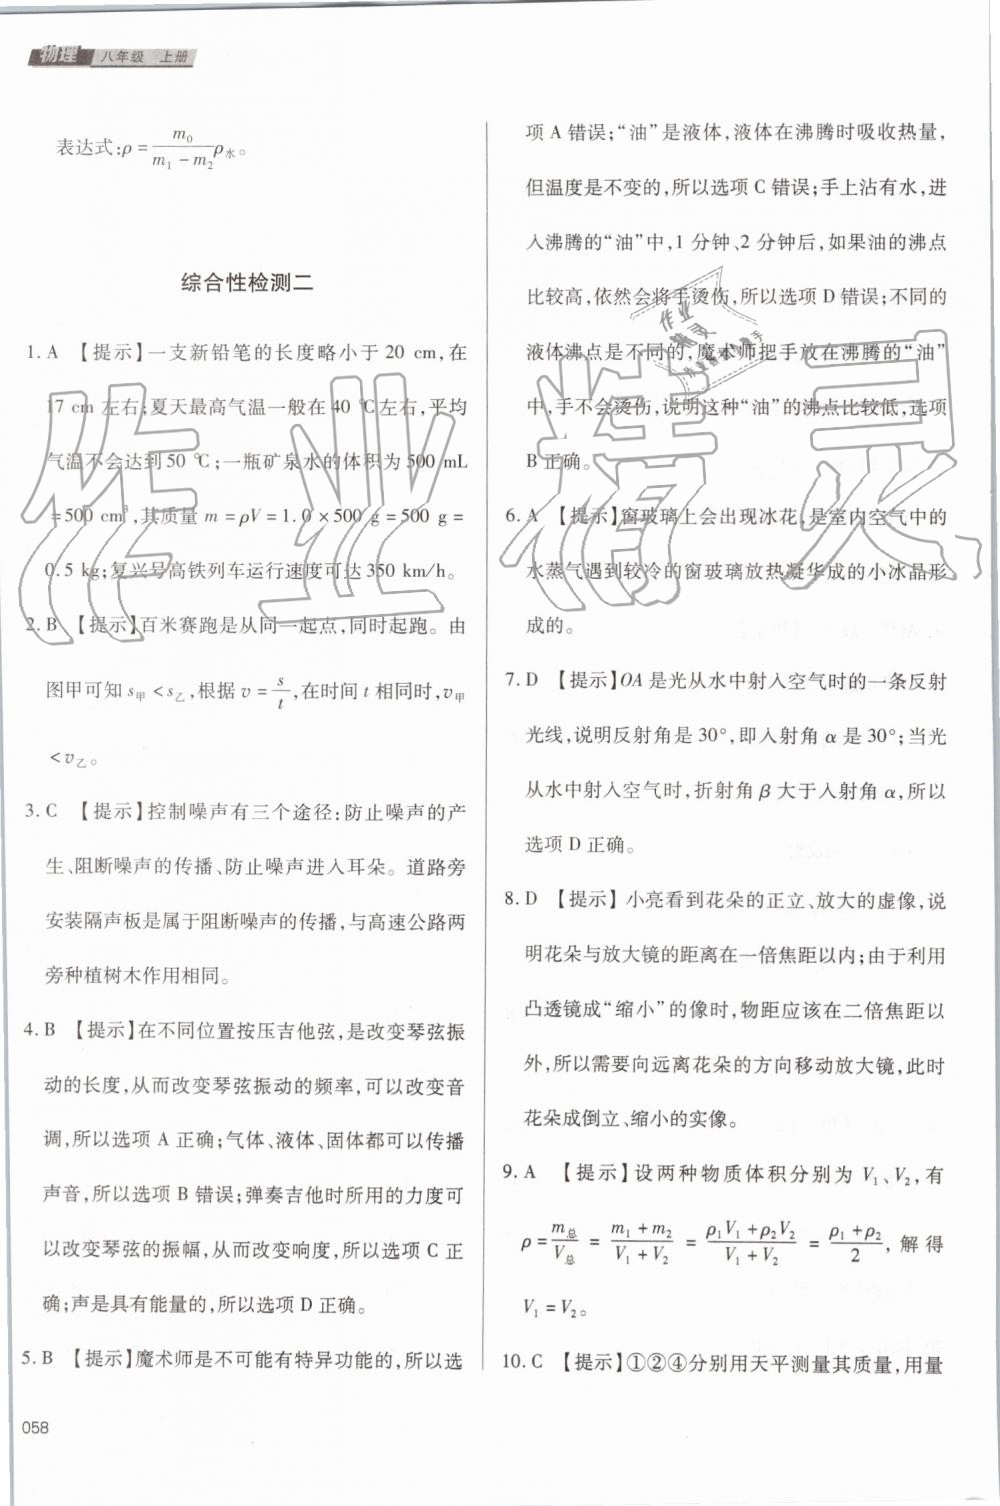 物理 八年级 上册
表达式:ρ = m₀/(m₁ − m₂) ρ水。
综合性检测二
1. A 【提示】一支新铅笔的长度略小于 20 cm,在
17 cm 左右;夏天最高气温一般在 40 ℃左右,平均
气温不会达到 50 ℃;一瓶矿泉水的体积为 500 mL
=500 cm³,其质量 m = ρV = 1.0 × 500 g = 500 g =
0.5 kg;复兴号高铁列车运行速度可达 350 km/h。
2. B 【提示】百米赛跑是从同一起点,同时起跑。由
图甲可知 s甲 < s乙,根据 v = s/t,在时间 t 相同时,v甲
< v乙。
3. C 【提示】控制噪声有三个途径:防止噪声的产
生、阻断噪声的传播、防止噪声进入耳朵。道路旁
安装隔声板是属于阻断噪声的传播,与高速公路两
旁种植树木作用相同。
4. B 【提示】在不同位置按压吉他弦,是改变琴弦振
动的长度,从而改变琴弦振动的频率,可以改变音
调,所以选项 A 正确;气体、液体、固体都可以传播
声音,所以选项 B 错误;弹奏吉他时所用的力度可
以改变琴弦的振幅,从而改变响度,所以选项 C 正
确;声是具有能量的,所以选项 D 正确。
5. B 【提示】魔术师是不可能有特异功能的,所以选
058
项 A 错误;“油”是液体,液体在沸腾时吸收热量,
但温度是不变的,所以选项 C 错误;手上沾有水,进
入沸腾的“油”中,1 分钟、2 分钟后,如果油的沸点
比较高,依然会将手烫伤,所以选项 D 错误;不同的
液体沸点是不同的,魔术师把手放在沸腾的“油”
中,手不会烫伤,说明这种“油”的沸点比较低,选项
B 正确。
6. A 【提示】窗玻璃上会出现冰花,是室内空气中的
水蒸气遇到较冷的窗玻璃放热凝华成的小冰晶形
成的。
7. D 【提示】OA 是光从水中射入空气时的一条反射
光线,说明反射角是 30°,即入射角 α 是 30°;当光
从水中射入空气时,折射角 β 大于入射角 α,所以
选项 D 正确。
8. D 【提示】 小亮看到花朵的正立、放大的虚像,说
明花朵与放大镜的距离在一倍焦距以内;由于利用
凸透镜成“缩小”的像时,物距应该在二倍焦距以
外,所以需要向远离花朵的方向移动放大镜,此时
花朵成倒立、缩小的实像。
9. A 【提示】设两种物质体积分别为 V₁、V₂,有
ρ = m总/V总 = (m₁ + m₂)/(V₁ + V₂) = (ρ₁V₁ + ρ₂V₂)/(V₁ + V₂) = (ρ₁ + ρ₂)/2, 解得
V₁ = V₂。
10. C 【提示】①②④分别用天平测量其质量,用量
作业精灵